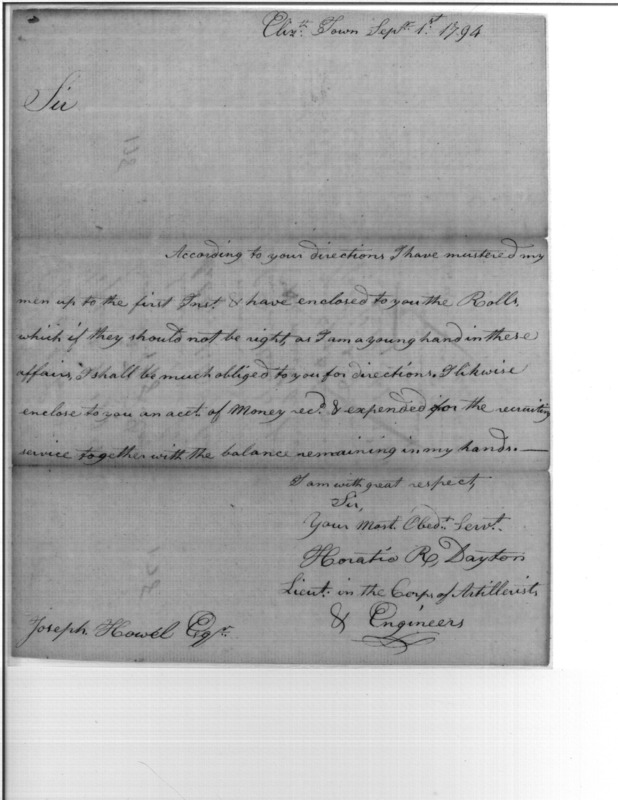 Elizth. Town Septr. 1st. 1794
Sir
According to your directions I have mustered my
men up to the first Inst. & have enclosed to you the Rolls,
which if they should not be right, as I am a young hand in these
affairs, I shall be much obliged to you for directions. I likwise
enclose to you an acct. of Money recd. & expended for the recruiting
service together with the balance remaining in my hands. —
I am with great respect,
Sir,
Your Most. Obedt. Servt.
Horatio R Dayton
Lieut. in the Corps of Artillerists
& Engineers
Joseph Howel Esqr.